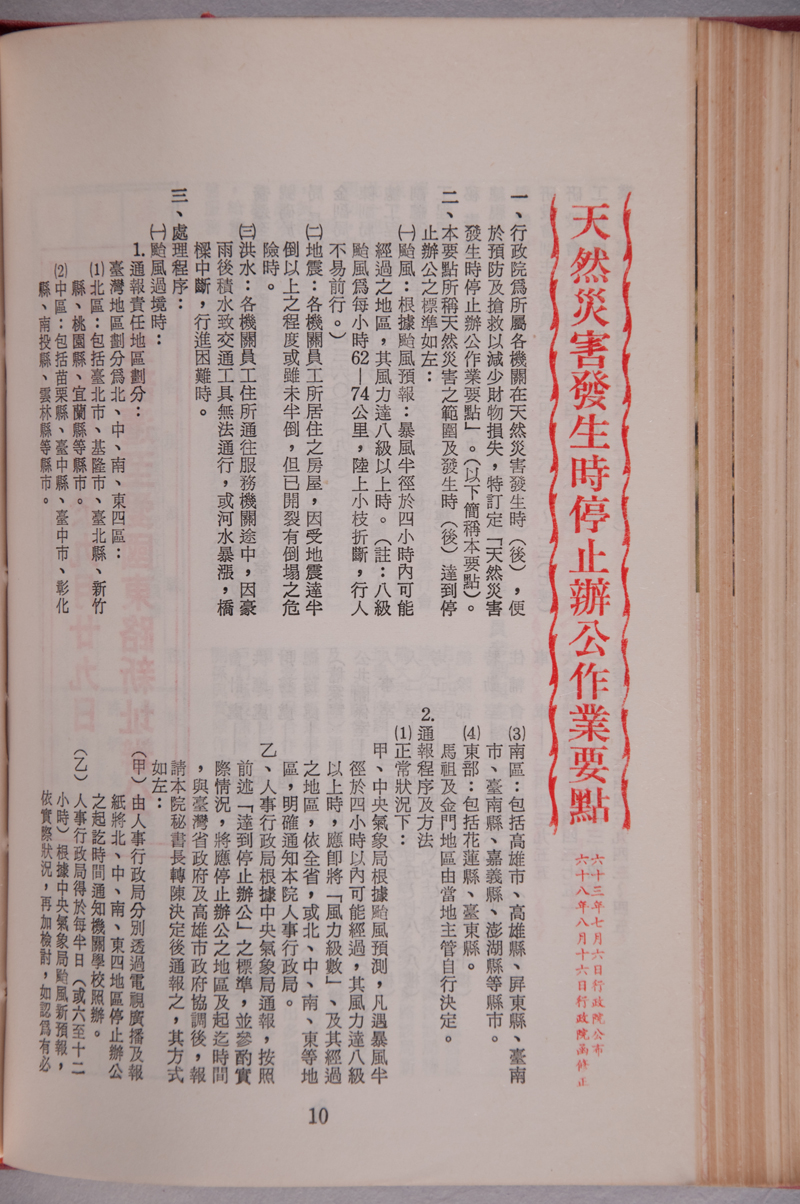 天然災害發生時停止辦公作業要點
六十三年七月六日行政院公布
六十八年八月十六日行政院函修正
一、行政院為所屬各機關在天然災害發生時（後），便
於預防及搶救以減少財物損失，特訂定「天然災害
發生時停止辦公作業要點」。（以下簡稱本要點）。
二、本要點所稱天然災害之範圍及發生時（後）達到停
止辦公之標準如左：
㈠颱風：根據颱風預報：暴風半徑於四小時內可能
經過之地區，其風力達八級以上時。（註：八級
颱風為每小時62—74公里，陸上小枝折斷，行人
不易前行。）
㈡地震：各機關員工所居住之房屋，因受地震達半
倒以上之程度或雖未半倒，但已開裂有倒塌之危
險時。
㈢洪水：各機關員工住所通往服務機關途中，因豪
雨後積水致交通工具無法通行，或河水暴漲，橋
樑中斷，行進困難時。
三、處理程序：
㈠颱風過境時：
1.通報責任地區劃分：
臺灣地區劃分為北、中、南、東四區：
⑴北區：包括臺北市、基隆市、臺北縣、新竹
縣、桃園縣、宜蘭縣等縣市。
⑵中區：包括苗栗縣、臺中縣、臺中市、彰化
縣、南投縣、雲林縣等縣市。
⑶南區：包括高雄市、高雄縣、屏東縣、臺南
市、臺南縣、嘉義縣、澎湖縣等縣市。
⑷東部：包括花蓮縣、臺東縣。
馬祖及金門地區由當地主管自行決定。
2.通報程序及方法
⑴正常狀況下：
甲、中央氣象局根據颱風預測，凡遇暴風半
徑於四小時以內可能經過，其風力達八級
以上時，應即將「風力級數」、及其經過
之地區，依全省，或北、中、南、東等地
區，明確通知本院人事行政局。
乙、人事行政局根據中央氣象局通報，按照
前述「達到停止辦公」之標準，並參酌實
際情況，將應停止辦公之地區及起迄時間
，與臺灣省政府及高雄市政府協調後，報
請本院秘書長轉陳決定後通報之，其方式
如左：
（甲）由人事行政局分別透過電視廣播及報
紙將北、中、南、東四地區停止辦公
之起訖時間通知機關學校照辦。
（乙）人事行政局得於每半日（或六至十二
小時）根據中央氣象局颱風新預報，
依實際狀況，再加檢討，如認為有必
10